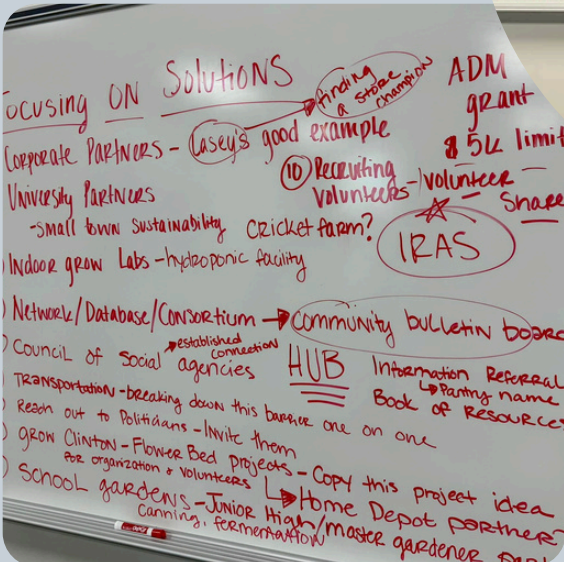 Focusing ON Solutions
finding
a store
champion
ADM
grant
$5k limit
Corporate Partners - Casey's good example
10 Recruiting
Volunteers - volunteer
Share
University Partners
- small town sustainability cricket farm?
IRAS
Indoor grow Labs - hydroponic facility
Network/Database/Consortium → community bulletin board
Council of Social agencies
established
connection
HUB
Information Referral
Pantry name
Book of Resources
Transportation - breaking down this barrier one on one
Reach out to Politicians - Invite them
grow Clinton - Flower Bed projects - Copy this project idea
for organization & volunteers
Home Depot partner?
School gardens - Junior High/master gardener
Canning, fermentation